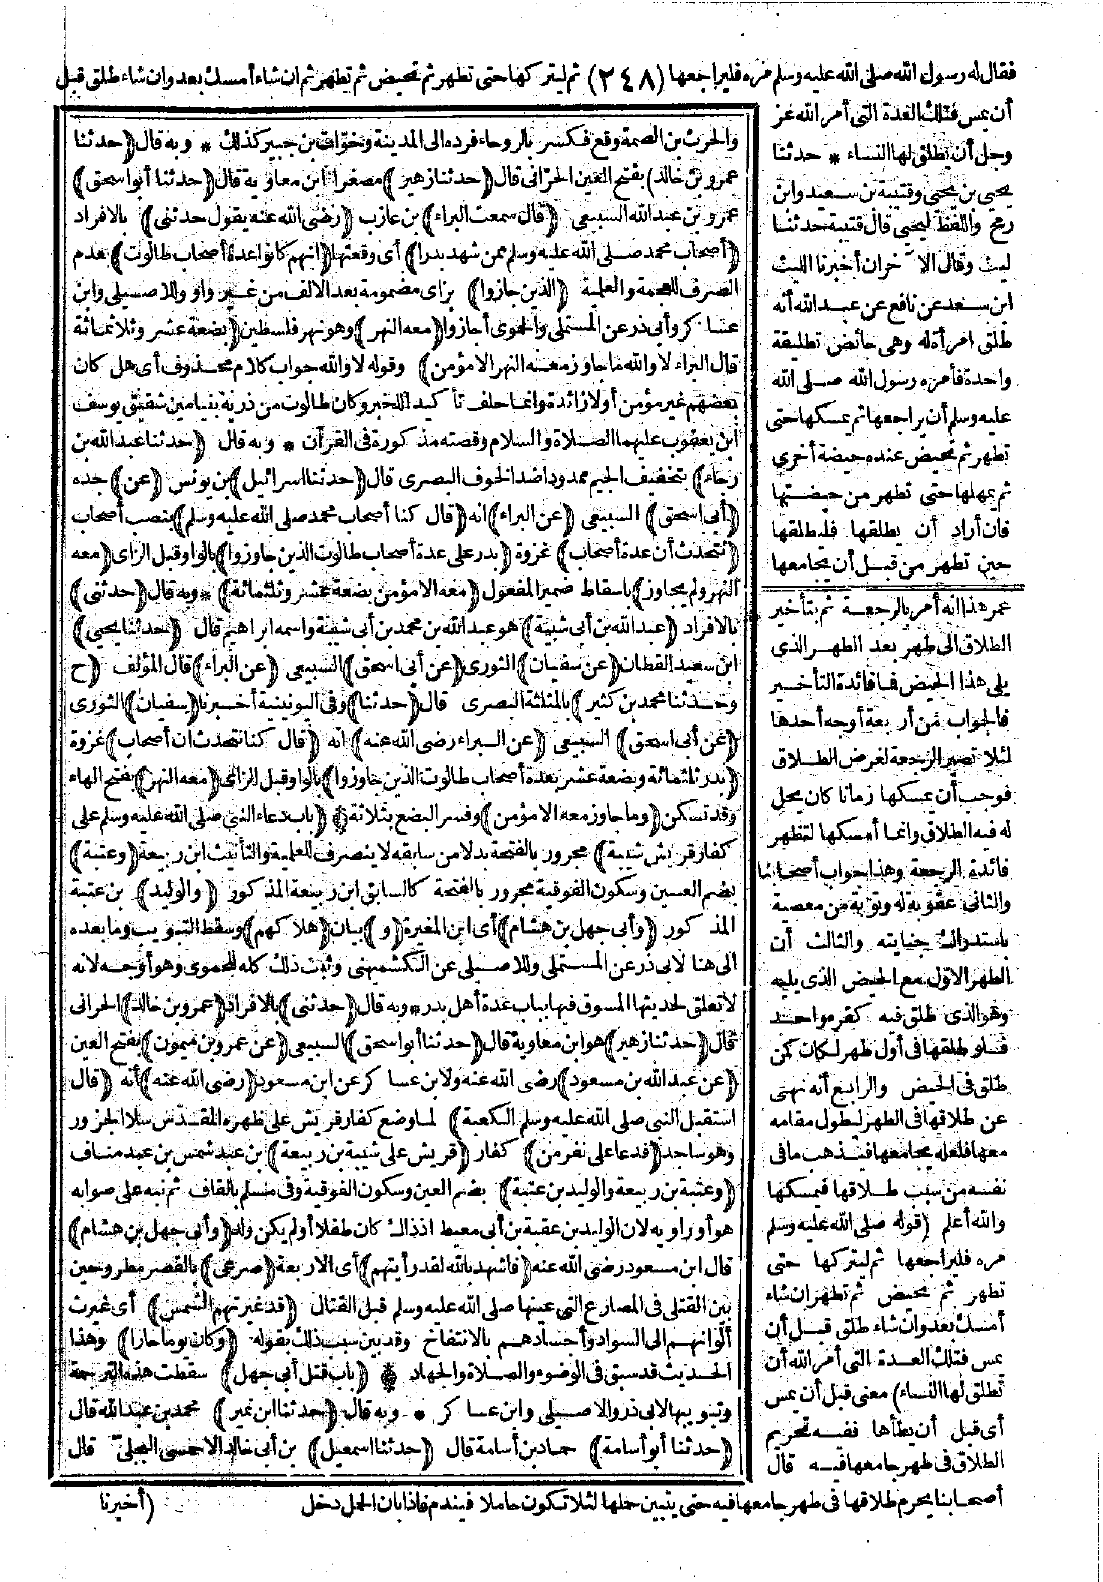 فقال له رسول الله صلى الله عليه وسلم مره فليراجعها (٢٤٨) ثم ليتركها حتى تطهر ثم تحيض ثم تطهر ثم ان شاء أمسك بعد وان شاء طلق قبل
أن يمس فتلك العدة التى أمر الله عز
وجل أن يطلق لها النساء * حدثنا
يحيى بن يحيى وقتيبة بن سعيد وابن
رمح واللفظ ليحيى قال قتيبة حدثنا
ليث وقال الآخران أخبرنا الليث
ابن سعد عن نافع عن عبد الله أنه
طلق امرأة له وهى حائض تطليقة
واحدة فأمره رسول الله صلى الله
عليه وسلم أن يراجعها ثم يمسكها حتى
تطهر ثم تحيض عنده حيضة أخرى
ثم يمهلها حتى تطهر من حيضتها
فان أراد أن يطلقها فليطلقها
حين تطهر من قبل أن يجامعها
عمر هذا انه أمر بالرجعة ثم بتأخير
الطلاق الى طهر بعد الطهر الذى
يلى هذا الحيض فما فائدة التأخير
فالجواب من أربعة أوجه أحدها
لئلا تصير الرجعة لغرض الطلاق
فوجب أن يمسكها زمانا كان يحل
له فيه الطلاق وانما أمسكها لتظهر
فائدة الرجعة وهذا جواب أصحابنا
والثانى عقوبة له وتوبة من معصية
باستدراك جنايته والثالث أن
الطهر الاول مع الحيض الذى يليه
وهو الذى طلق فيه كقرء واحد
فلو طلقها فى أول طهر لكان كمن
طلق فى الحيض والرابع أنه نهى
عن طلاقها فى الطهر ليطول مقامه
معها فلعله يجامعها فيذهب ما فى
نفسه من سبب طلاقها فيمسكها
والله أعلم (قوله صلى الله عليه وسلم
مره فليراجعها ثم ليتركها حتى
تطهر ثم تحيض ثم تطهر ان شاء
أمسك بعد وان شاء طلق قبل أن
يمس فتلك العدة التى أمر الله أن
تطلق لها النساء) معنى قبل أن يمس
أى قبل أن يطأها ففيه تحريم
الطلاق فى طهر جامعها فيه قال
أصحابنا يحرم طلاقها فى طهر جامعها فيه حتى يتبين حملها لئلا تكون حاملا فيندم فاذا بان الحمل دخل
والحرث بن الصمة وقع فكسر بالروحاء فرده الى المدينة وخوّات بن جبير كذلك * وبه قال (حدثنا
عمرو بن خالد) بفتح العين الحرانى قال (حدثنا زهير) مصغرا ابن معاوية قال (حدثنا أبو اسحق)
عمرو بن عبد الله السبيعى (قال سمعت البراء) بن عازب (رضى الله عنه يقول حدثنى) بالافراد
(أصحاب محمد صلى الله عليه وسلم ممن شهد بدرا) أى وقعتها (انهم كانوا عدة أصحاب طالوت) بعدم
الصرف للعجمة والعلمية (الذين جازوا) بزاى مضمومة بعد الالف من غير واو وللاصيلى وابن
عساكر وأبى ذر عن المستملى والحموى أجازوا (معه النهر) وهو نهر فلسطين (بضعة عشر وثلاثمائة
قال البراء لا والله ما جاوز معه النهر الا مؤمن) وقوله لا والله جواب كلام محذوف أى هل كان
بعضهم غير مؤمن أو لا زائدة وانما حلف تأكيد اللخبر وكان طالوت من ذرية بنيامين شقيق يوسف
ابن يعقوب عليهما الصلاة والسلام وقصته مذكورة فى القرآن * وبه قال (حدثنا عبد الله بن
رجاء) بتخفيف الجيم ممدودا ضد الخوف البصرى قال (حدثنا اسرائيل) بن يونس (عن) جده
(أبى اسحق) السبيعى (عن البراء) انه (قال كنا أصحاب محمد صلى الله عليه وسلم) بنصب أصحاب
(نتحدث أن عدة أصحاب) غزوة (بدر على عدة أصحاب طالوت الذين جاوزوا) بالواو قبل الزاى (معه
النهر ولم يجاوز) باسقاط ضمير المفعول (معه الا مؤمن بضعة عشر وثلثمائة) * وبه قال (حدثنى)
بالافراد (عبد الله بن أبى شيبة) هو عبد الله بن محمد بن أبى شيبة واسمه ابراهيم قال (حدثنا يحيى)
ابن سعيد القطان (عن سفيان) الثورى (عن أبى اسحق) السبيعى (عن البراء) قال المؤلف (ح
وحدثنا محمد بن كثير) بالمثلثة البصرى قال (حدثنا) وفى اليونينية أخبرنا (سفيان) الثورى
(عن أبى اسحق) السبيعى (عن البراء رضى الله عنه) انه (قال كنا نتحدث ان أصحاب) غزوة
(بدر ثلثمائة وبضعة عشر بعدة أصحاب طالوت الذين جاوزوا) بالواو قبل الزاى (معه النهر) بفتح الهاء
وقد تسكن (وما جاوز معه الا مؤمن) وفسر البضع بثلاثة ۞ (باب دعاء النبى صلى الله عليه وسلم على
كفار قريش شيبة) مجرور بالفتحة بدلا من سابقه لا ينصرف للعلمية والتأنيث ابن ربيعة (وعتبة)
بضم العين وسكون الفوقية مجرور بالفتحة كالسابق ابن ربيعة المذكور (والوليد) بن عتبة
المذكور (وأبى جهل بن هشام) أى ابن المغيرة (و) بيان (هلاكهم) وسقط التبويب وما بعده
الى هنا لابى ذر عن المستملى وللاصيلى عن الكشميهنى وثبت ذلك كله للحموى وهو أوجه لانه
لا تعلق لحديثها المسوق فيها بباب عدة أهل بدر * وبه قال (حدثنى) بالافراد (عمرو بن خالد) الحرانى
قال (حدثنا زهير) هو ابن معاوية قال (حدثنا أبو اسحق) السبيعى (عن عمرو بن ميمون) بفتح العين
(عن عبد الله بن مسعود) رضى الله عنه ولابن عساكر عن ابن مسعود (رضى الله عنه) أنه (قال
استقبل النبى صلى الله عليه وسلم الكعبة) لما وضع كفار قريش على ظهره المقدس سلا الجزور
وهو ساجد (فدعا على نفر من) كفار (قريش على شيبة بن ربيعة) بن عبد شمس بن عبد مناف
(وعتبة بن ربيعة والوليد بن عتبة) بضم العين وسكون الفوقية وفى مسلم بالقاف ثم نبه على صوابه
هو أو راويه لان الوليد بن عقبة بن أبى معيط اذ ذاك كان طفلا أو لم يكن ولد (وأبى جهل بن هشام)
قال ابن مسعود رضى الله عنه (فاشهد بالله لقد رأيتهم) أى الاربعة (صرعى) بالقصر مطروحين
بين القتلى فى المصارع التى عينها صلى الله عليه وسلم قبل القتال (قد غيرتهم الشمس) أى غيرت
ألوانهم الى السواد وأجسادهم بالانتفاخ وقد بين سبب ذلك بقوله (وكان يوما حارا) وهذا
الحديث قد سبق فى الوضوء والصلاة والجهاد ۞ (باب قتل أبى جهل) سقطت هذه الترجمة
وتبويبها لابى ذر والاصيلى وابن عساكر * وبه قال (حدثنا ابن نمير) محمد بن عبد الله قال
(حدثنا أبو أسامة) حماد بن أسامة قال (حدثنا اسمعيل) بن أبى خالد الاحمسى البجلى قال
(أخبرنا